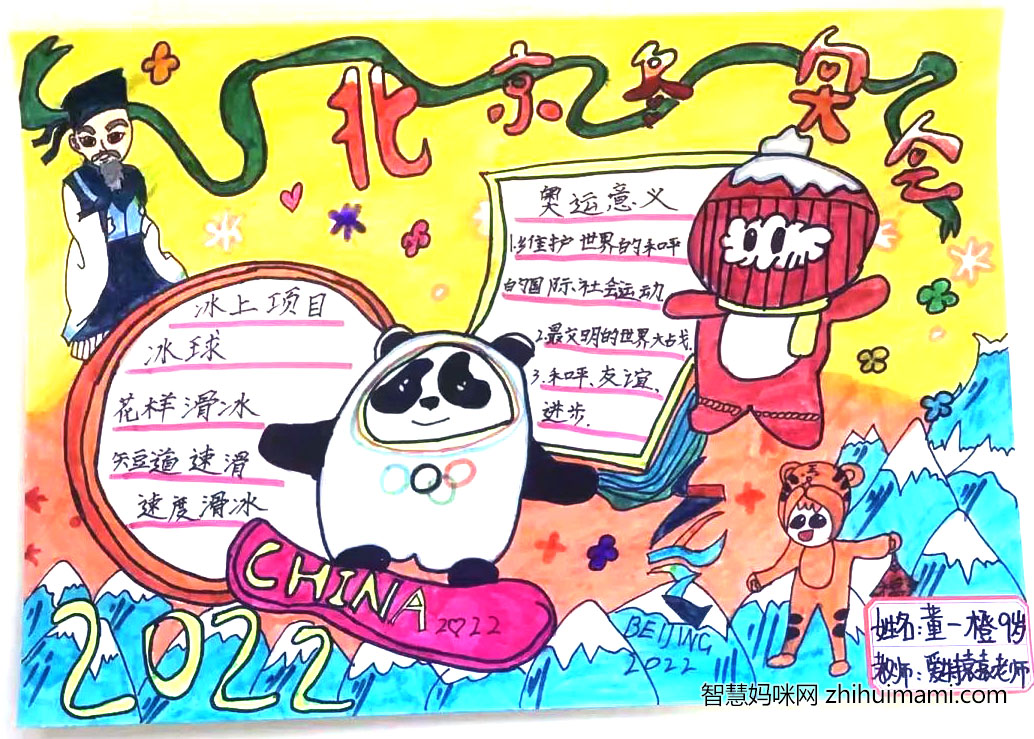 北京冬奥会
奥运意义
1.维护世界的和呯
的国际社会运动
2.最文明的世界大占戈.
3.和呯、友谊、
进步.
冰上项目
冰球
花样滑冰
短道速滑
速度滑冰
CHINA
2022
2022
BEIJING
2022
姓名:董一橙9岁
老师:爱特袁嘉老师
智慧妈咪网 zhihuimami.com